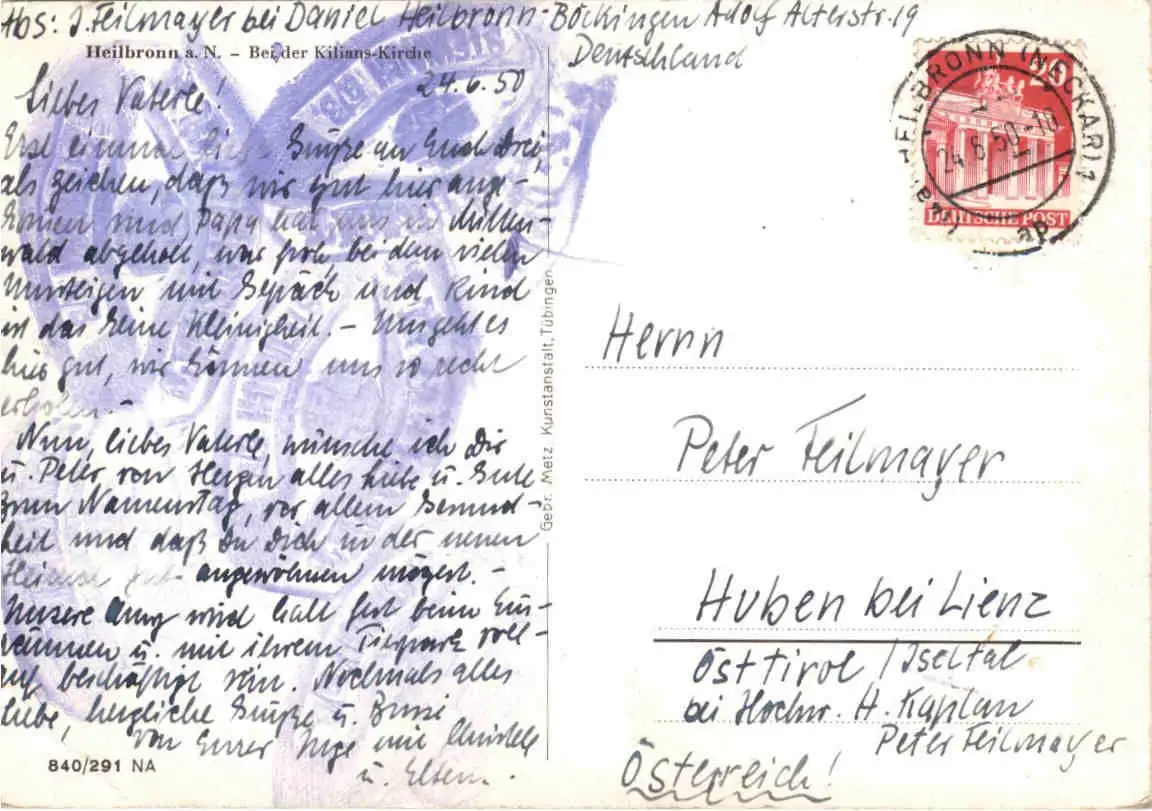 Abs: J. Feilmayer bei Daniel Heilbronn-Böckingen Adolf Alterstr. 19
Deutschland
Heilbronn a. N. – Bei der Kilians-Kirche
24.6.50
Liebes Vaterle!
Erst einmal liebe Grüße an Euch drei,
als Zeichen, daß wir gut hier ange-
kommen sind, Papa hat uns in Mitten-
wald abgeholt, war froh, bei dem vielen
Umsteigen mit Gepäck und Kind
ist das keine Kleinigkeit. – Uns geht es
hier gut, wir können uns so recht
erholen. –
Nun, liebes Vaterle wünsche ich Dir
u. Peter von Herzen alles Liebe u. Gute
zum Namenstag, vor allem Gesund-
heit und daß Du Dich in der neuen
Heimat gut angewöhnen mögest. –
Unsere wird halt fest beim Ein-
räumen u. mit ihrem Tierpark voll-
auf beschäftigt sein. Nochmals alles
Liebe, herzliche Grüße u. Bussi
von Eurer Inge mit Christl
u. Eltern.
840/291 NA
Gebr. Metz, Kunstanstalt, Tübingen
HEILBRONN (NECKAR) 1
24.6.50-10
20
DEUTSCHE POST
Herrn
Peter Feilmayer
Huben bei Lienz
Ost Tirol / Iseltal
bei Hochw. H. Kaplan
Peter Feilmayer
Österreich!